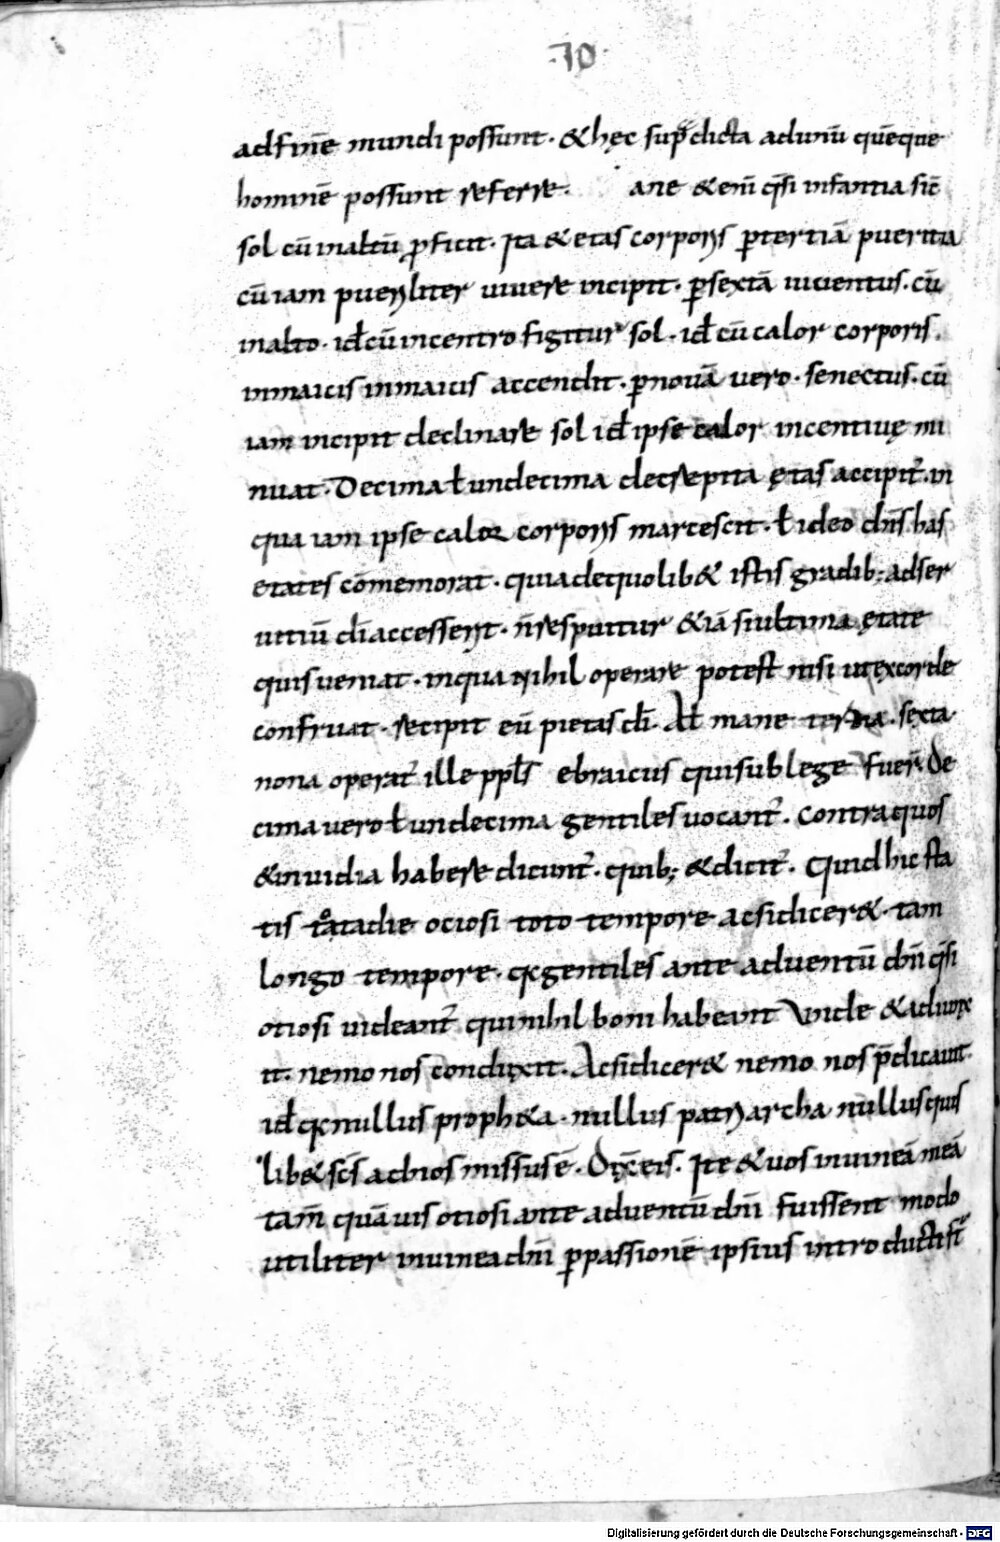 ·70·
adfinē mundi possunt· &hęc sup̄dicta adunū quēque
hominē possunt referre· ane &eni̅ q̄si infantia sic̄
sol cū inaltū ꝓficit· Ita &etas corporis ꝑtertiā pueritia
cū iam pueriliter uiuere incipit· ꝑsextā iuuentus· cū
inalto· id̄ cū incentro figitur sol· id̄ cū calor corporis
inmaius inmaius accendit· ꝑnouā uero· senectus· cū
iam incipit declinare sol id̄ ipse calor incentiuę mi
nuat· Decima ł undecima decrepita ętas accipit̄· in
qua iam ipse calor corporis marcescit· ł ideo dn̄s has
etates cōmemorat· quia dequolib& istis gradib; adser
uitiū dī accesserit· n̄ respuitur &iā si ultima ętate
quis ueniat· inqua nihil operare potest nisi ut excorde
confruat· recipit eū pietas dī· Ał mane tertia· sexta
nona operat̄ ille ppłs ebraicus qui sub lege fuer̄· De
cima uero ł undecima gentiles uocant̄· Contraquos
&inuidia habere dicunt̄· quib; &dicit̄· Quid hic sta
tis tota die ociosi toto tempore acsi dicer&· tam
longo tempore· qr gentiles ante aduentū dn̄i q̄si
otiosi uideant̄ qui nihil boni habeant
it· nemo nos conduxit· Acsi dicer& nemo nos p̄dicauit·
id̄ qr nullus proph&a· nullus patriarcha nullus quis
lib& sc̄s ad nos missus ē· Dix̄ eis· Ite &uos inuineā meā
tam̄ quāuis otiosi ante aduentū dn̄i fuissent modo
utiliter inuinea dn̄i ꝑpassionē ipsius introducti sī
Digitalisierung gefördert durch die Deutsche Forschungsgemeinschaft · DFG